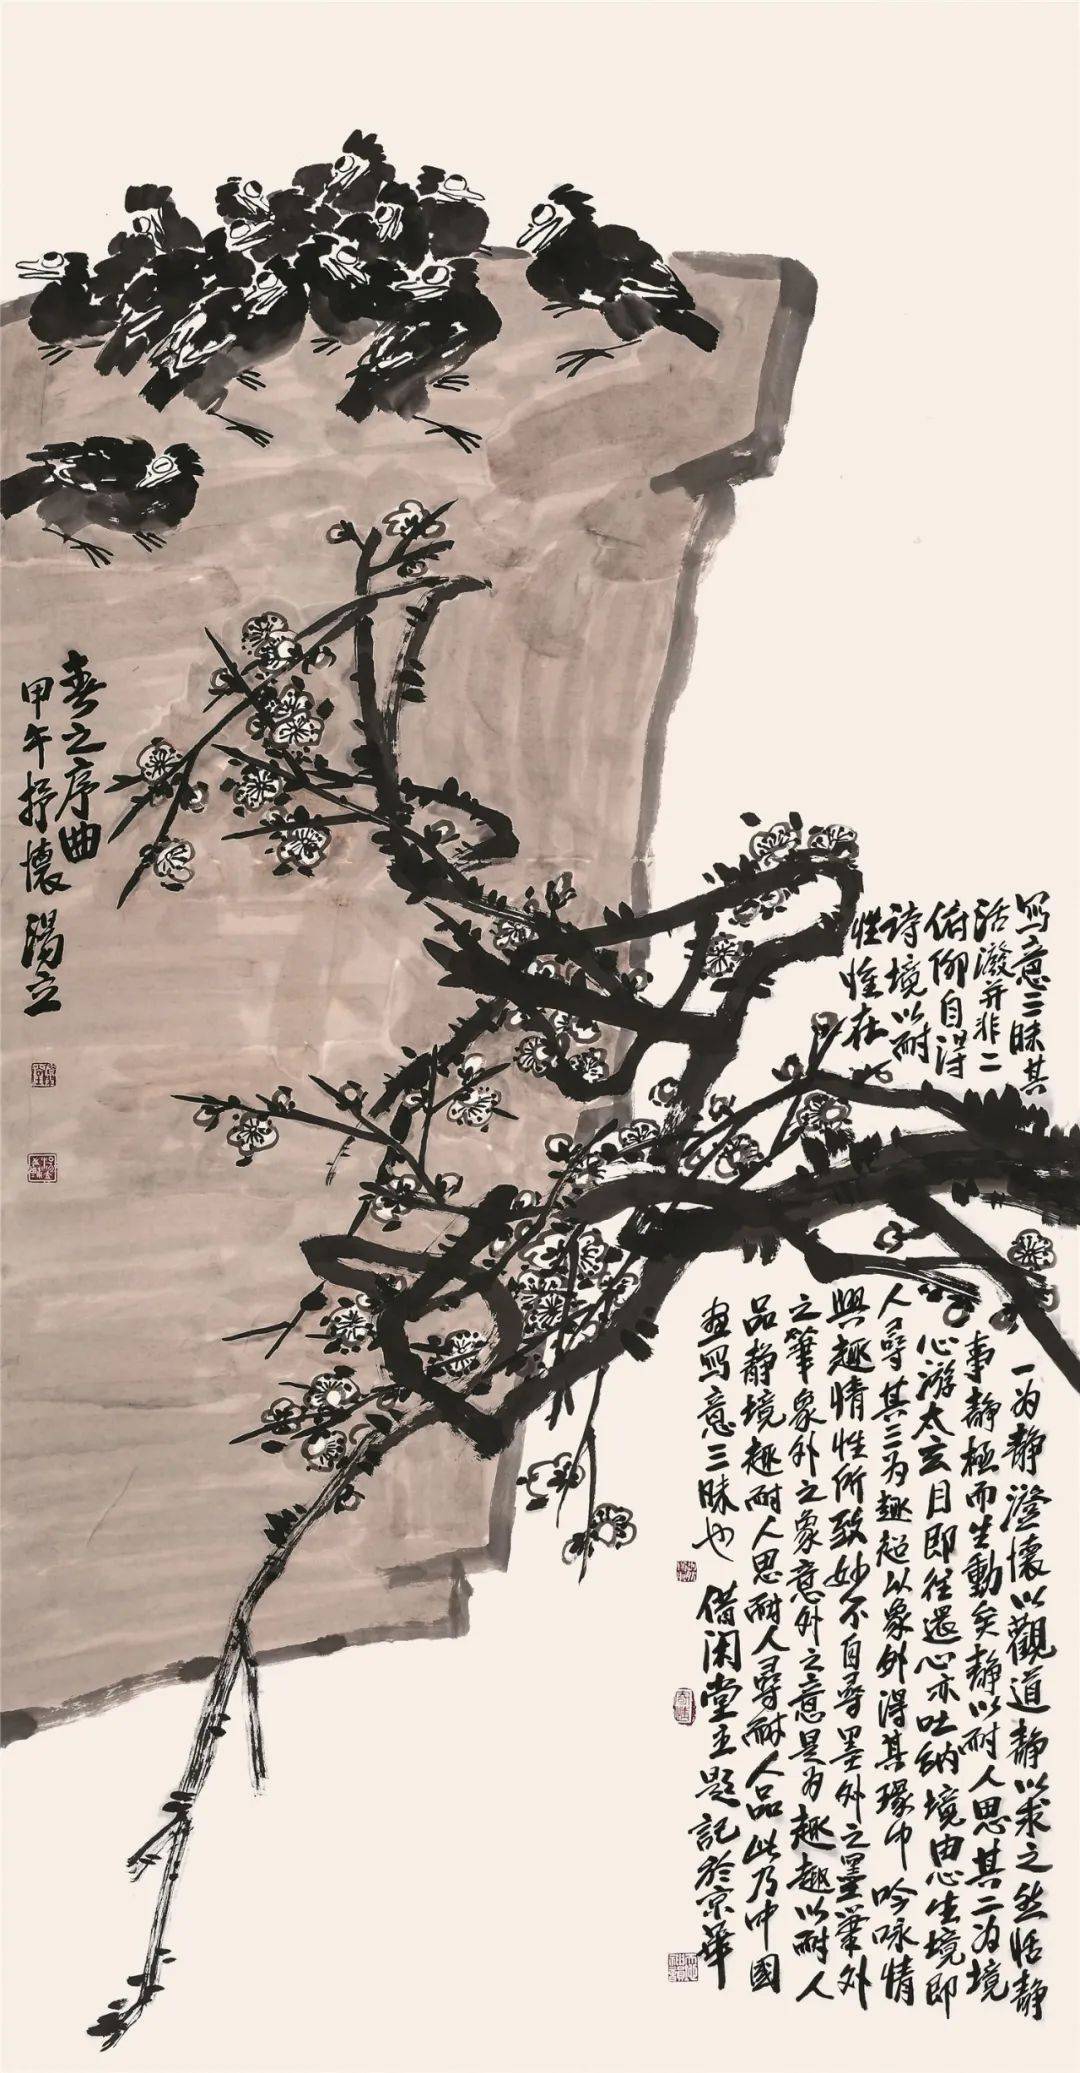 写意三昧其一为静澄懷以觀道静以求之然恬静
活潑并非二事静極而生動矣静以耐人思其二为境
俯仰自得心游太玄目即往還心亦吐纳境由心生境即
诗境以耐人尋其三为趣超以象外得其環中吟咏情
性惟在興趣情性所致妙不自尋墨外之墨筆外
之筆象外之象意外之意是为趣趣以耐人
品静境趣耐人思耐人尋耐人品此乃中國
畫写意三昧也 借闲堂主題記於京華
春之序曲
甲午抒懷湯立